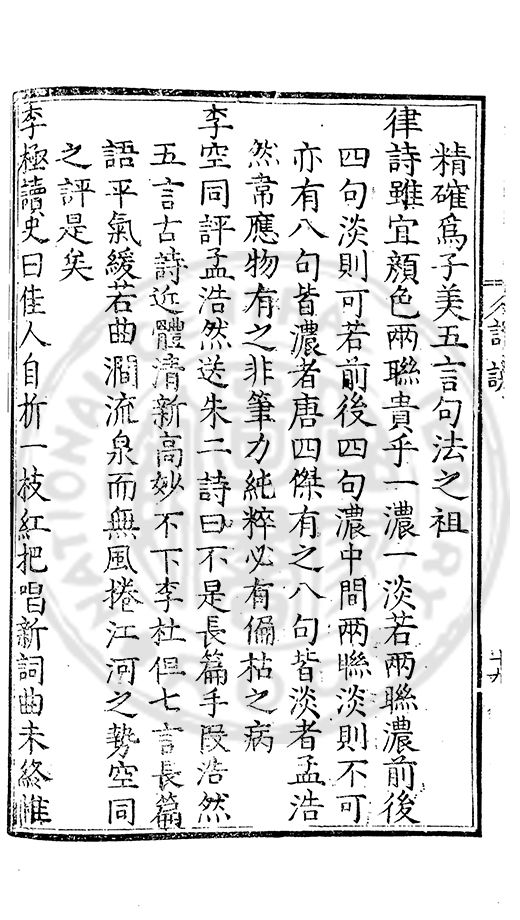 精確為子美五言句法之祖
律詩雖宜顏色兩聯貴乎一濃一淡若兩聯濃前後
四句淡則可若前後四句濃中間兩聯淡則不可
亦有八句皆濃者唐四傑有之八句皆淡者孟浩
然常應物有之非筆力純粹必有偏枯之病
李空同評孟浩然送朱二詩曰不是長篇手段浩然
五言古詩近體清新高妙不下李杜但七言長篇
語平氣緩若曲澗流泉而無風捲江河之勢空同
之評是矣
李極讀史曰佳人自折一枝紅把唱新詞曲未終惟